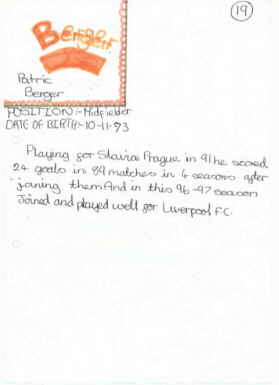 19
Berger
Patric
Berger
POSITION:- Midfielder
DATE OF BIRTH:- 10-11-73
Playing for Slavia Prague in 91he scored
24 goals in 89 matches in 4 seasons after
joining them And in this 96-97 season
Joined and played well for Liverpool F.C.